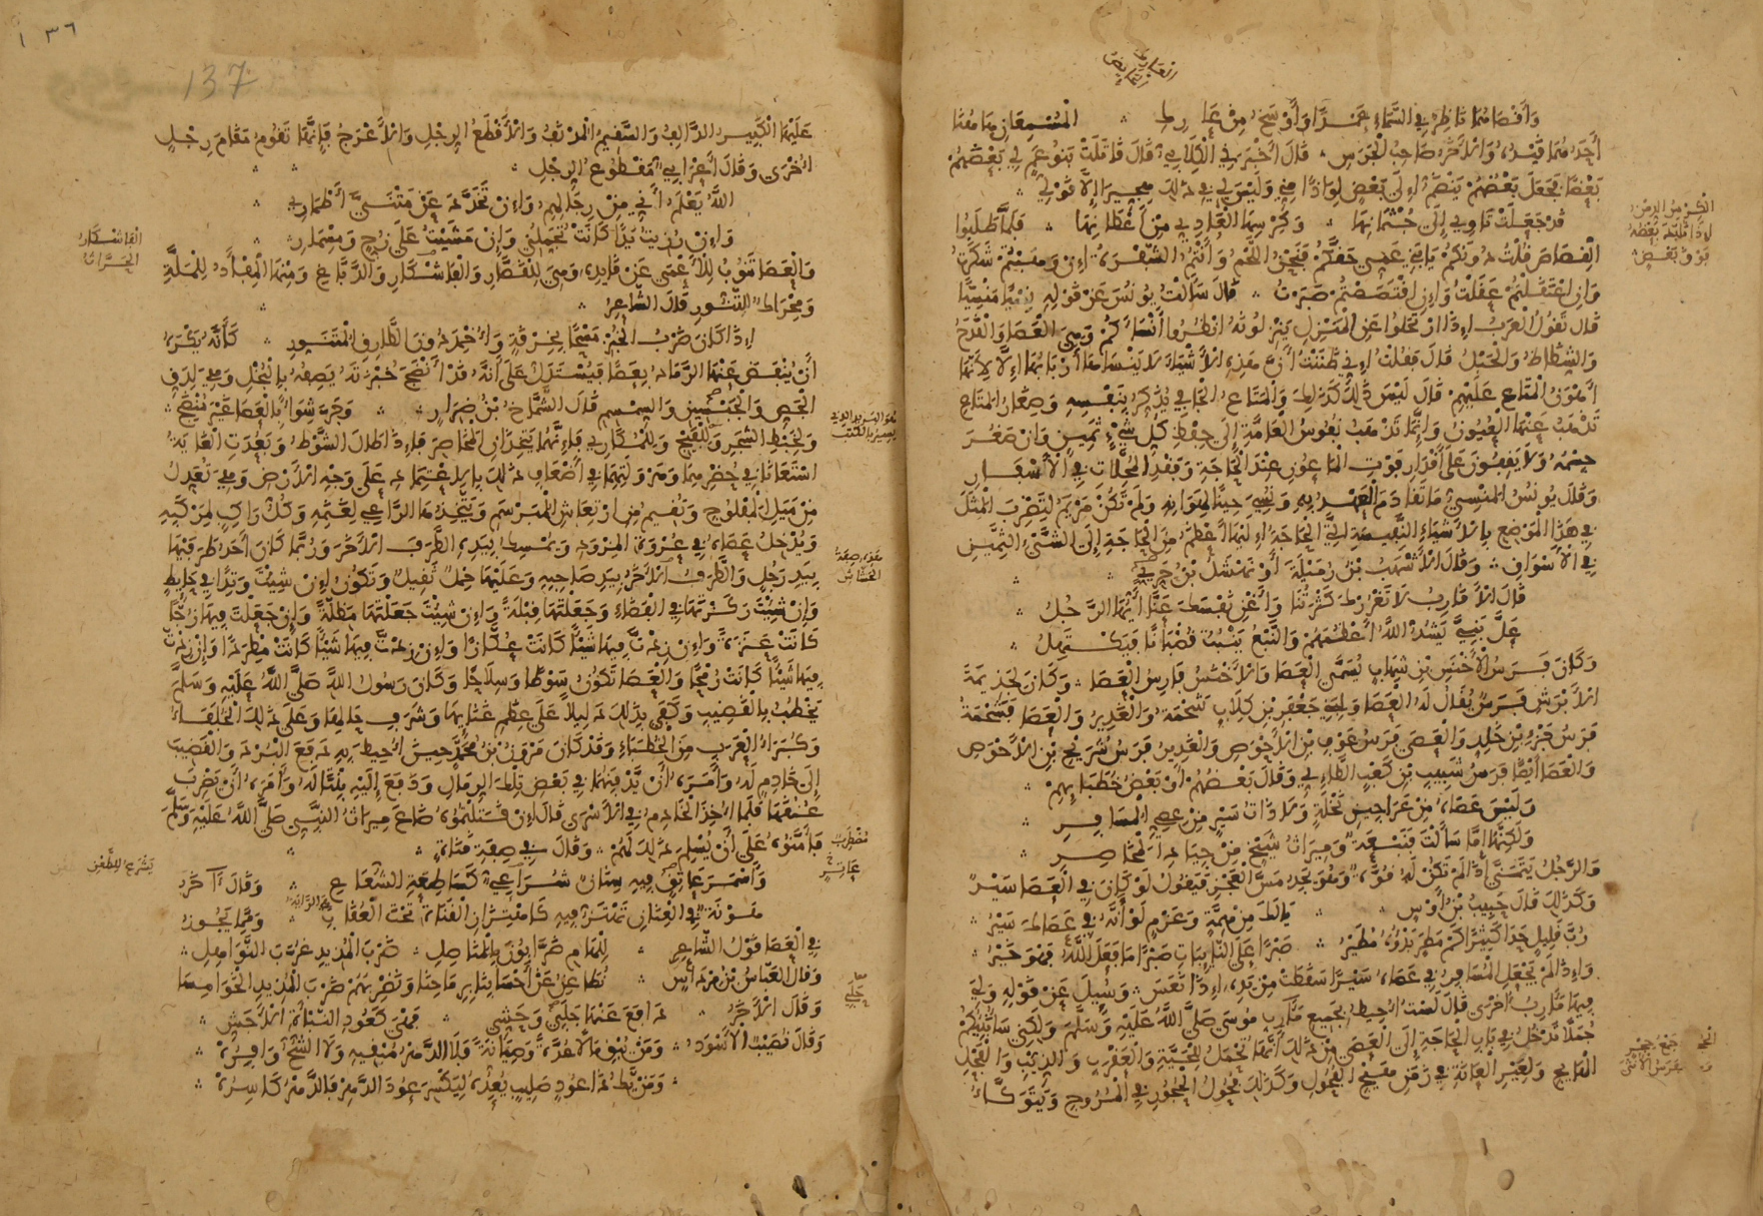 وَأَفْضَاهُمَا نَاظِرٌ فِي السَّمَاءِ
أَحَدُهُمَا قَيْدٌ وَالْأَخَرُ صَاحِبُ الْجَرَسِ قَالَ أَخْبَرَنِي الْكِلَابِيُّ قَالَ قَاتَلَتْ بَنُو عَمٍّ لِي بَعْضُهُمْ
بَعْضًا فَجَعَلَ بَعْضُهُمْ يَنْضَمُّ إِلَى بَعْضٍ لِوَاذًا مِنِّي وَلَيْسَ لِي فِي ذَلِكَ هِجِّيرًا إِلَّا قَوْلِي
قَدْ جَعَلَتْ تَأْوِي إِلَى جُثْمَانِهَا وَكِرْسِهَا الْعَادِيِّ مِنْ أَعْطَانِهَا فَلَمَّا طَلَبُوا
الْقِصَاصَ قُلْتُ دُونَكُمْ يَا بَنِي عَمِّي حَقَّكُمْ فَنَحْنُ اللَّحْمُ وَأَنْتُمُ الشَّفْرَةُ إِنْ وَهَبْتُمْ شَكَرْتُ
وَإِنِ اعْتَقَلْتُمْ عَقَلْتُ وَإِنِ اقْتَصَصْتُمْ صَبَرْتُ قَالَ سَأَلْتُ يُونُسَ عَنْ قَوْلِهِ نِسْيًا مَنْسِيًّا
قَالَ تَقُولُ الْعَرَبُ إِذَا ارْتَحَلُوا عَنِ الْمَنْزِلِ يَنْزِلُونَهُ انْظُرُوا أَنْسَاءَكُمْ وَهِيَ الْعَصَا وَالْقَدَحُ
وَالشِّظَاظُ وَالْحَبْلُ قَالَ فَقُلْتُ إِنِّي ظَنَنْتُ أَنَّ هَذِهِ الْأَشْيَاءَ لَا يَنْسَاهَا أَرْبَابُهَا إِلَّا لِأَنَّهَا
أَهْوَنُ الْمَتَاعِ عَلَيْهِمْ قَالَ لَيْسَ ذَلِكَ كَذَلِكَ وَالْمَتَاعُ الْجَافِي يُذَكِّرُ بِنَفْسِهِ وَصِغَارُ الْمَتَاعِ
تَذْهَبُ عَنْهَا الْعُيُونُ وَإِنَّمَا تَذْهَبُ نُفُوسُ الْعَامَّةِ إِلَى حِفْظِ كُلِّ شَيْءٍ ثَمِينٍ وَإِنْ صَغُرَ
جِسْمُهُ وَلَا يَقِفُونَ عَلَى أَقْدَارِ فَوْتِ الْمَاعُونِ عِنْدَ الْحَاجَةِ وَفَقْدِ الْمُحِلَّاتِ فِي الْأَسْفَارِ
وَقَالَ يُونُسُ الْمَنْسِيُّ مَا تَقَادَمَ الْعَهْدُ بِهِ وَنُسِيَ حِينًا لِهَوَانِهِ وَلَمْ تَكُنْ مَرْيَمُ لِتَضْرِبَ الْمَثَلَ
فِي هَذَا الْمَوْضِعِ بِالْأَشْيَاءِ النَّفِيسَةِ الَّتِي الْحَاجَةُ إِلَيْهَا أَعْظَمُ مِنَ الْحَاجَةِ إِلَى الشَّيْءِ الثَّمِينِ
فِي الْأَسْوَاقِ وَقَالَ الْأَشْهَبُ بْنُ رُمَيْلَةَ أَوْ نَهْشَلُ بْنُ حَرِّيٍّ
قَالَ الْأَقَارِبُ لَا تَغْرُرْكَ كَثْرَتُنَا وَأَغْنِ نَفْسَكَ عَنَّا أَيُّهَا الرَّجُلُ
عَلَّ بَنِيَّ يَشُدُّ اللَّهُ أَعْظُمَهُمْ وَالنَّبْعُ يَنْبُتُ قُضْبَانًا فَيَكْتَهِلُ
وَكَانَ فَرَسُ الْأَخْنَسِ بْنِ شِهَابٍ يُسَمَّى الْعَصَا وَالْأَخْنَسُ فَارِسُ الْعَصَا وَكَانَ لِجَذِيمَةَ
الْأَبْرَشِ فَرَسٌ يُقَالُ لَهُ الْعَصَا وَلِبَنِي جَعْفَرِ بْنِ كِلَابٍ شَحْمَةُ وَالْغَدِيرُ وَالْعَصَا فَشَحْمَةُ
فَرَسُ جَزْءِ بْنِ خَالِدٍ وَالْعَصَى فَرَسُ عَوْفِ بْنِ الْأَحْوَصِ وَالْغَدِيرُ فَرَسُ شُرَيْحِ بْنِ الْأَحْوَصِ
وَالْعَصَا أَيْضًا فَرَسُ شَبِيبِ بْنِ كَعْبٍ الطَّائِيِّ وَقَالَ بَعْضُهُمْ أَوْ بَعْضُ خُطَبَائِهِمْ
وَلَيْسَ عَصَاهُ مِنْ عَرَاجِينِ نَخْلَةٍ وَلَا ذَاتُ سَيْرٍ مِنْ عِصِيِّ الْمُسَافِرِ
وَلَكِنَّهَا إِمَّا سَأَلْتَ فَنَبْعَةٌ وَمِيرَاثُ شَيْخٍ مِنْ جِيَادِ الْمَخَاصِرِ
وَالرَّجُلُ يَتَمَنَّى إِذَا لَمْ تَكُنْ لَهُ قُوَّةٌ وَهُوَ يَجِدُ مَسَّ الْعَجْزِ فَيَقُولُ لَوْ كَانَ فِي الْعَصَا سَيْرٌ
وَكَذَلِكَ قَالَ حَبِيبُ بْنُ أَوْسٍ يَا لَكَ مِنْ هِمَّةٍ وَعَزْمٍ لَوْ أَنَّهُ فِي عَصَاكَ سَيْرُ
رُبَّ قَلِيلٍ جَدَا كَثِيرًا كَمْ مَطَرٍ بَدْؤُهُ مُطَيْرُ صَبْرًا عَلَى النَّائِبَاتِ صَبْرًا مَا فَعَلَ اللَّهُ فَهْوَ خَيْرُ
وَإِذَا لَمْ يَجْعَلِ الْمُسَافِرُ فِي عَصَاهُ سَيْرًا سَقَطَتْ مِنْ يَدِهِ إِذَا نَعَسَ وَسُئِلَ عَنْ قَوْلِهِ وَلِيَ
فِيهَا مَآرِبُ أُخْرَى قَالَ لَسْتُ أُحِيطُ بِجَمِيعِ مَآرِبِ مُوسَى صَلَّى اللَّهُ عَلَيْهِ وَسَلَّمَ وَلَكِنِّي سَأُنَبِّئُكُمْ
جُمَلًا تَدْخُلُ فِي بَابِ الْحَاجَةِ إِلَى الْعَصَى مِنْ ذَلِكَ أَنَّهَا تُحْمَلُ لِلْحَيَّةِ وَالْعَقْرَبِ وَالذِّئْبِ وَالْفَحْلِ
الْهَايِجِ وَلِعَيْرِ الْعَانَةِ فِي زَمَنِ هَيْجِ الْفُحُولِ وَكَذَلِكَ فُحُولُ الْحُجُورِ فِي الْمُرُوجِ وَيَتَوَكَّأُ
١٣٦
137
عَلَيْهَا الْكَبِيرُ الدَّالِفُ وَالسَّقِيمُ الْمُدْنَفُ وَالْأَقْطَعُ الرِّجْلِ وَالْأَعْرَجُ فَإِنَّهَا تَقُومُ مَقَامَ رِجْلٍ
أُخْرَى وَقَالَ أَعْرَابِيٌّ مَقْطُوعُ الرِّجْلِ
اللَّهُ يَعْلَمُ أَنِّي مِنْ رِجَالِهِمُ وَإِنْ تَخَدَّدَ عَنْ مَتْنَيَّ أَطْمَارِي
وَإِنْ رُزِيتُ يَدًا كَانَتْ تُجَمِّلُنِي وَإِنْ مَشَيْتُ عَلَى زُجٍّ وَمِسْمَارِ
وَالْعَصَا تَنُوبُ لِلْأَعْمَى عَنْ قَائِدِهِ وَهِيَ لِلْقَصَّارِ وَالْفَاشْكَارِ وَالدَّبَّاغِ وَمِنْهَا الْمِفْأَدُ لِلْمَلَّةِ
وَمِحْرَاكُ التَّنُّورِ قَالَ الشَّاعِرُ
إِذَا كَانَ ضَرْبُ الْخُبْزِ مَسْحًا بِخِرْقَةٍ وَأُخْمِدَ دُونَ الطَّارِقِ الْمُتَنَوِّرِ كَأَنَّهُ يَكْرَهُ
أَنْ يَنْفُضَ عَنْهَا الرَّمَادَ بِعَصًا فَيُسْتَدَلَّ عَلَى أَنَّهُ قَدْ أَنْضَجَ خُبْزَتَهُ يَصِفُهُ بِالْبُخْلِ وَهِيَ لِدَقِّ
الْجِصِّ وَالْجَبْسِينِ وَالسِّمْسِمِ قَالَ الشَّمَّاخُ بْنُ ضِرَارٍ وَجَرِّ شِوَاءٍ بِالْعَصَا غَيْرِ مُنْضَجِ
وَلِخَبْطِ الشَّجَرِ وَلِلْفَيْجِ وَلِلْمُكَارِي فَإِنَّهُمَا يَتَّخِذَانِ الْمَخَاصِرَ فَإِذَا طَالَ الشَّوْطُ وَبَعُدَتِ الْغَايَةُ
اسْتَعَانَا فِي حُضْرِهِمَا وَهَرْوَلَتِهِمَا فِي أَضْعَافِ ذَلِكَ بِالِاعْتِمَادِ عَلَى وَجْهِ الْأَرْضِ وَهِيَ تُعَدِّلُ
مِنْ مَيْلِ الْمَفْلُوجِ وَتُقِيمُ مِنِ ارْتِعَاشِ الْمُبَرْسَمِ وَيَتَّخِذُهَا الرَّاعِي لِغَنَمِهِ وَكُلُّ رَاكِبٍ لِمَرْكَبِهِ
وَيُدْخِلُ عَصَاهُ فِي عُرْوَةِ الْمِزْوَدِ وَيُمْسِكُ بِيَدِهِ الطَّرَفَ الْأَخَرَ وَرُبَّمَا كَانَ أَحَدُ طَرَفَيْهَا
بِيَدِ رَجُلٍ وَالطَّرَفُ الْأَخَرُ بِيَدِ صَاحِبِهِ وَعَلَيْهَا حِمْلٌ ثَقِيلٌ وَتَكُونُ إِنْ شِئْتَ وَتِدًا فِي حَايِطٍ
وَإِنْ شِئْتَ رَكَزْتَهَا فِي الْفَضَاءِ وَجَعَلْتَهَا قِبْلَةً وَإِنْ شِئْتَ جَعَلْتَهَا مِظَلَّةً وَإِنْ جَعَلْتَ فِيهَا زُجًّا
كَانَتْ عَنَزَةً وَإِنْ زِدْتَ فِيهَا شَيْئًا كَانَتْ عُكَّازًا وَإِنْ زِدْتَ فِيهَا شَيْئًا كَانَتْ مِطْرَدًا وَإِنْ زِدْتَ
فِيهَا شَيْئًا كَانَتْ رُمْحًا وَالْعَصَا تَكُونُ سَوْطًا وَسِلَاحًا وَكَانَ رَسُولُ اللَّهِ صَلَّى اللَّهُ عَلَيْهِ وَسَلَّمَ
يَخْطُبُ بِالْقَضِيبِ وَكَفَى بِذَلِكَ دَلِيلًا عَلَى عِظَمِ غَنَائِهَا وَشَرَفِ حَالِهَا وَعَلَى ذَلِكَ الْخُلَفَاءُ
وَكُبَرَاءُ الْعَرَبِ مِنَ الْخُطَبَاءِ وَقَدْ كَانَ مَرْوَنُ بْنُ مُحَمَّدٍ حِينَ أُحِيطَ بِهِ دَفَعَ الْبُرْدَ وَالْقَضِيبَ
إِلَى خَادِمٍ لَهُ وَأَمَرَهُ أَنْ يَدْفِنَهُمَا فِي بَعْضِ تِلْكَ الرِّمَالِ وَدَفَعَ إِلَيْهِ بِنْتًا لَهُ وَأَمَرَهُ أَنْ يَضْرِبَ
عُنُقَهَا فَلَمَّا أُخِذَ الْخَادِمُ فِي الْأَسْرَى قَالَ إِنْ قَتَلْتُمُوهُ ضَاعَ مِيرَاثُ النَّبِيِّ صَلَّى اللَّهُ عَلَيْهِ وَسَلَّمَ
فَأَمَّنُوهُ عَلَى أَنْ يُسْلِمَ ذَلِكَ لَهُمْ وَقَالَ فِي صِفَةِ قَنَاةٍ
وَأَسْمَرَ عَاتِقٌ فِيهِ سِنَانٌ شُرَاعِيٌّ كَسَاطِعَةِ الشُّعَاعِ وَقَالَ آخَرُ
هَوْنَةٌ فِي الْعِنَانِ تَهْتَزُّ فِيهِ كَاهْتِزَازِ الْقَنَاةِ تَحْتَ الْعُقَابِ وَمِمَّا يَجُوزُ
فِي الْعَصَا قَوْلُ الشَّاعِرِ لِلْهَامِ ضَرَّابُونَ بِالْمَنَاصِلِ ضَرْبَ الْمُذِيدِ غُرُبَ النَّوَاهِلِ
وَقَالَ الْعَبَّاسُ بْنُ مِرْدَاسٍ نُطَاعِنُ عَنْ أَحْسَابِنَا بِرِمَاحِنَا وَنَضْرِبُهُمْ ضَرْبَ الْمُذِيدِ الْخَوَامِسَا
وَقَالَ الْأَخَرُ دَافَعَ عَنْهَا حَلَبِي وَحَشِّي فَهْيَ كَعُودِ النَّبْعَةِ الْأَجَشِّ
وَقَالَ نُصَيْبٌ الْأَسْوَدُ وَمَنْ يُبْقِ مَالًا عُدَّةً وَصِيَانَةً فَلَا الدَّهْرُ مُبْقِيهِ وَلَا الشُّحُّ وَافِرُهُ
وَمَنْ يَكُ ذَا عُودٍ صَلِيبٍ يُعِدُّهُ لِيَكْسِرَ عُودَ الدَّهْرِ فَالدَّهْرُ كَاسِرُهُ